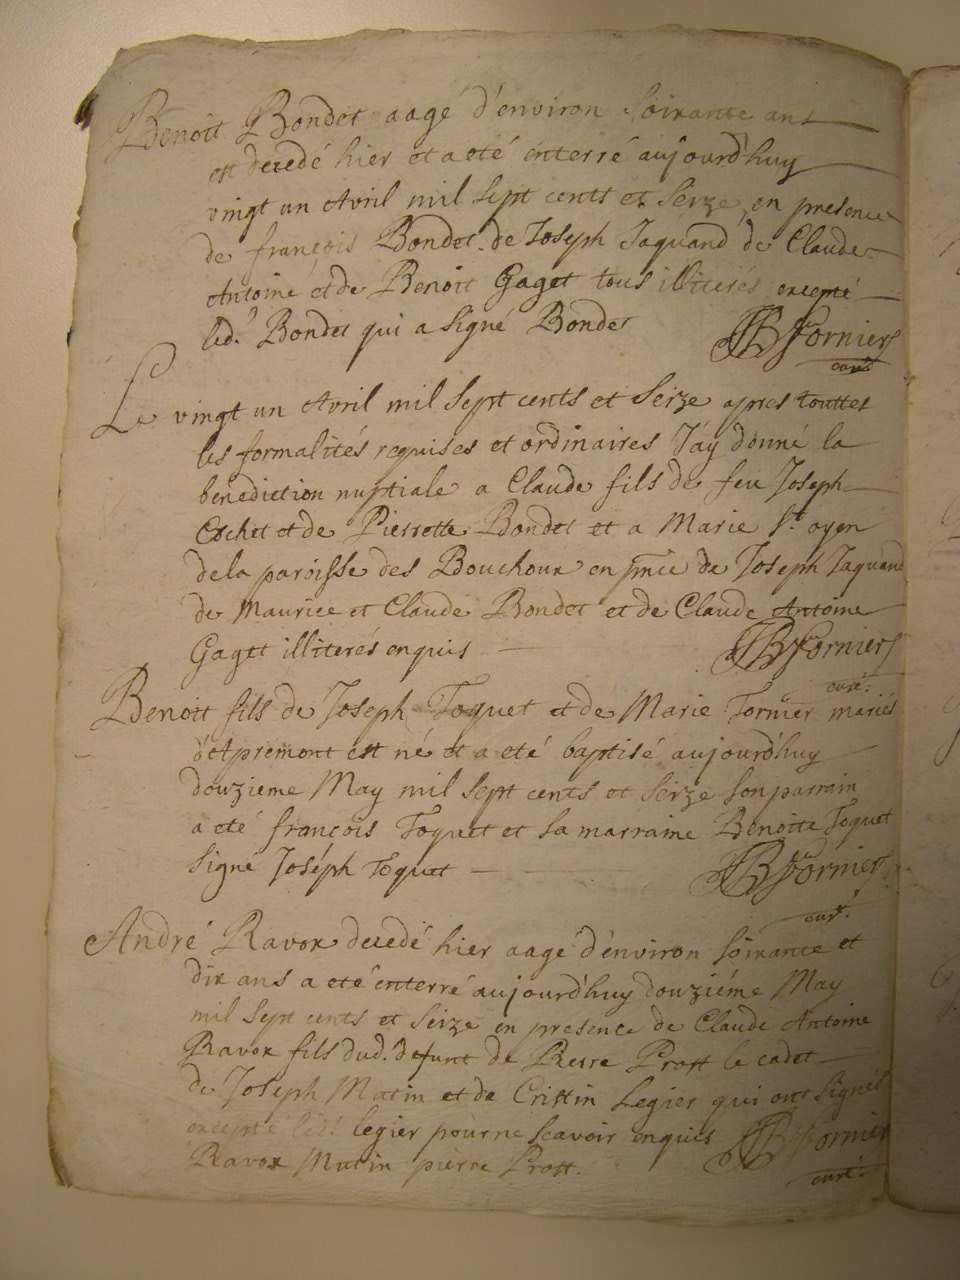 Benoit Bondet aagé d'environ soixante ans
est decedé hier et a eté enterré aujourd'huy
vingt un Avril mil sept cents et seize, en presence
de françois Bondet de Joseph Jaquand de Claude
Antoine et de Benoit Gaget tous illiterés excepté
led.t Bondet qui a signé Bondet
JB Fornier
curé.
Le vingt un Avril mil sept cents et seize apres touttes
les formalités requises et ordinaires J'ay donné la
benediction nuptiale a Claude fils de feu Joseph
Cochet et de Pierrette Bondet et a Marie St. oyen
de la paroisse des Bouchoux en pnce de Joseph Jaquand
de Maurice et Claude Bondet et de Claude Antoine
Gaget illiterés enquis
JB Fornier
curé.
Benoit fils de Joseph Toquet et de Marie Tornier mariés
d'Apremont est né et a eté baptisé aujourd'huy
douzieme May mil sept cents et seize son parrain
a eté françois Toquet et sa marraine Benoitte Toquet
signé Joséph toquet
JB Fornier
curé.
André Ravox decedé hier aagé d'environ soixante et
dix ans a eté enterré aujourd'huy douziéme May
mil sept cents et seize en presence de Claude Antoine
Ravox fils dud. defunt de Pierre Prost le cadet
de Joseph Mutin et de Cristin Legier qui ont signés
excepté led.t legier pour ne scavoir enquis
JB Fornier
Ravox Mutin pierre Prost.
curé.